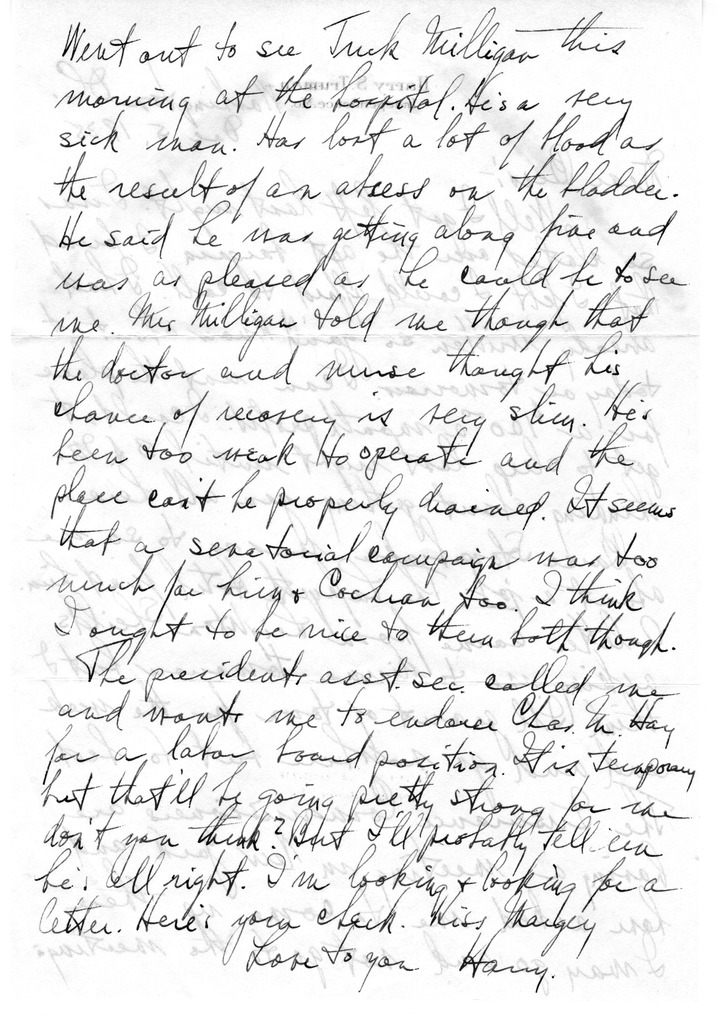 Went out to see Tuck Milligan this
morning at the hospital. He's a very
sick man. Has lost a lot of blood as
the result of an abcess on the bladder.
He said he was getting along fine and
was as pleased as he could be to see
me. Mrs Milligan told me though that
the doctor and nurse thought his
chance of recovery is very slim. He's
been too weak to operate and the
place can't be properly drained. It seems
that a senatorial campaign was too
much for him & Cochran too. I think
I ought to be nice to them both though.
The presidents asst. sec. called me
and wants me to endorse Chas. M. Hay
for a labor board position. It is temporary
but that'll be going pretty strong for me
don't you think? But I'll probably tell em
he's all right. I'm looking & looking for a
letter. Here's your check. Kiss Margey
Love to you Harry.